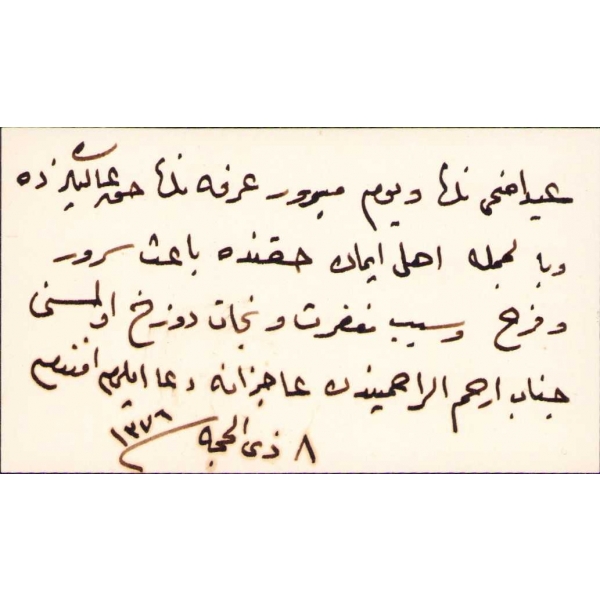 عيد اضحى نڭا ويوم مبرور عرفه نڭا حق عاليلرنده
وبالجمله اهل ايمان حقنده باعث سرور
وفرح وسبب مغفرت ونجات دوزخ اولمسنى
جناب ارحم الراحميندن عاجزانه دعا ايلرم افندم
٨ ذى الحجه ١٣٧٦